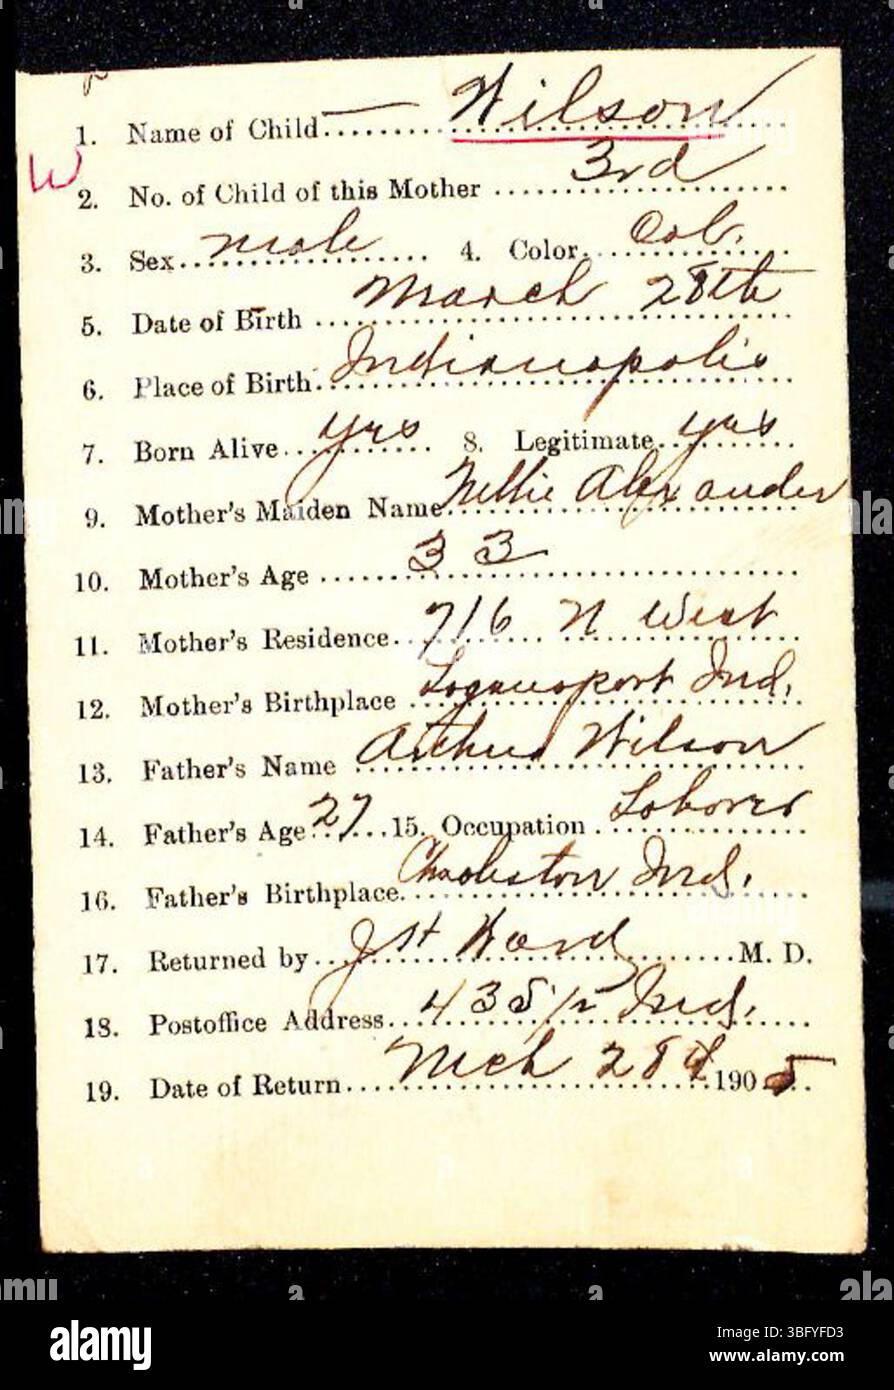 1. Name of Child — Wilson
W
2. No. of Child of this Mother 3rd
3. Sex Male 4. Color Col.
5. Date of Birth March 28th
6. Place of Birth Indianapolis
7. Born Alive yes 8. Legitimate yes
9. Mother's Maiden Name Nellie Alexander
10. Mother's Age 33
11. Mother's Residence 716 N West
12. Mother's Birthplace Logansport Ind.
13. Father's Name Arthur Wilson
14. Father's Age 27 15. Occupation Laborer
16. Father's Birthplace Charleston Ind.
17. Returned by Ward M. D.
18. Postoffice Address Ind.
19. Date of Return Mch 28 1905
alamy
Image ID: 3BFYFD3
www.alamy.com